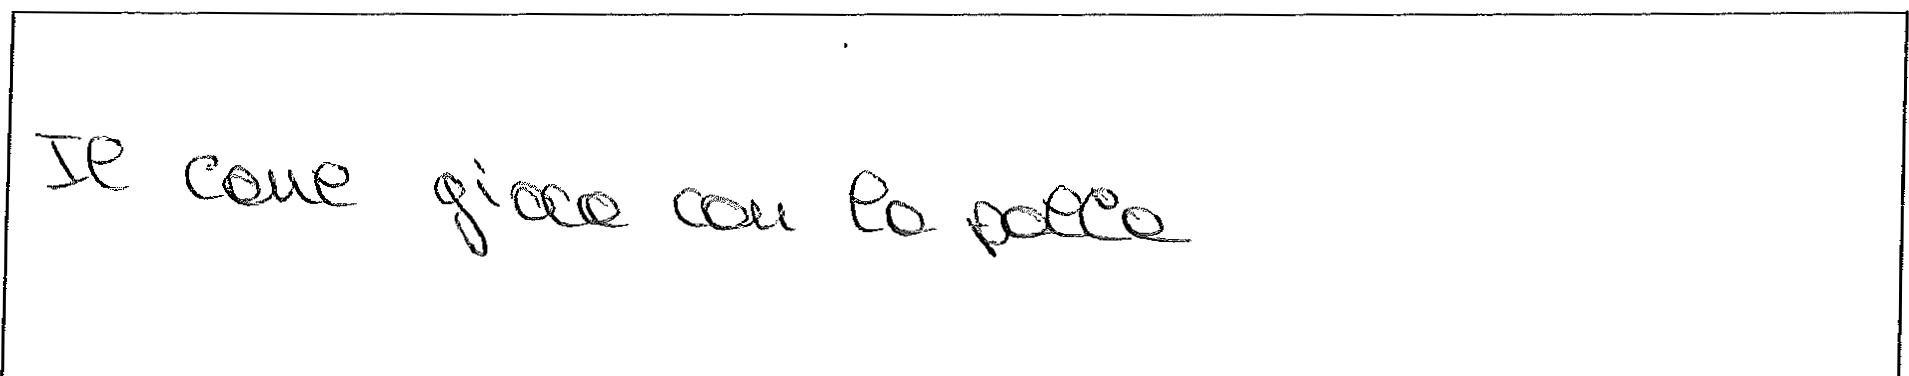 Il cane gioca con la palla